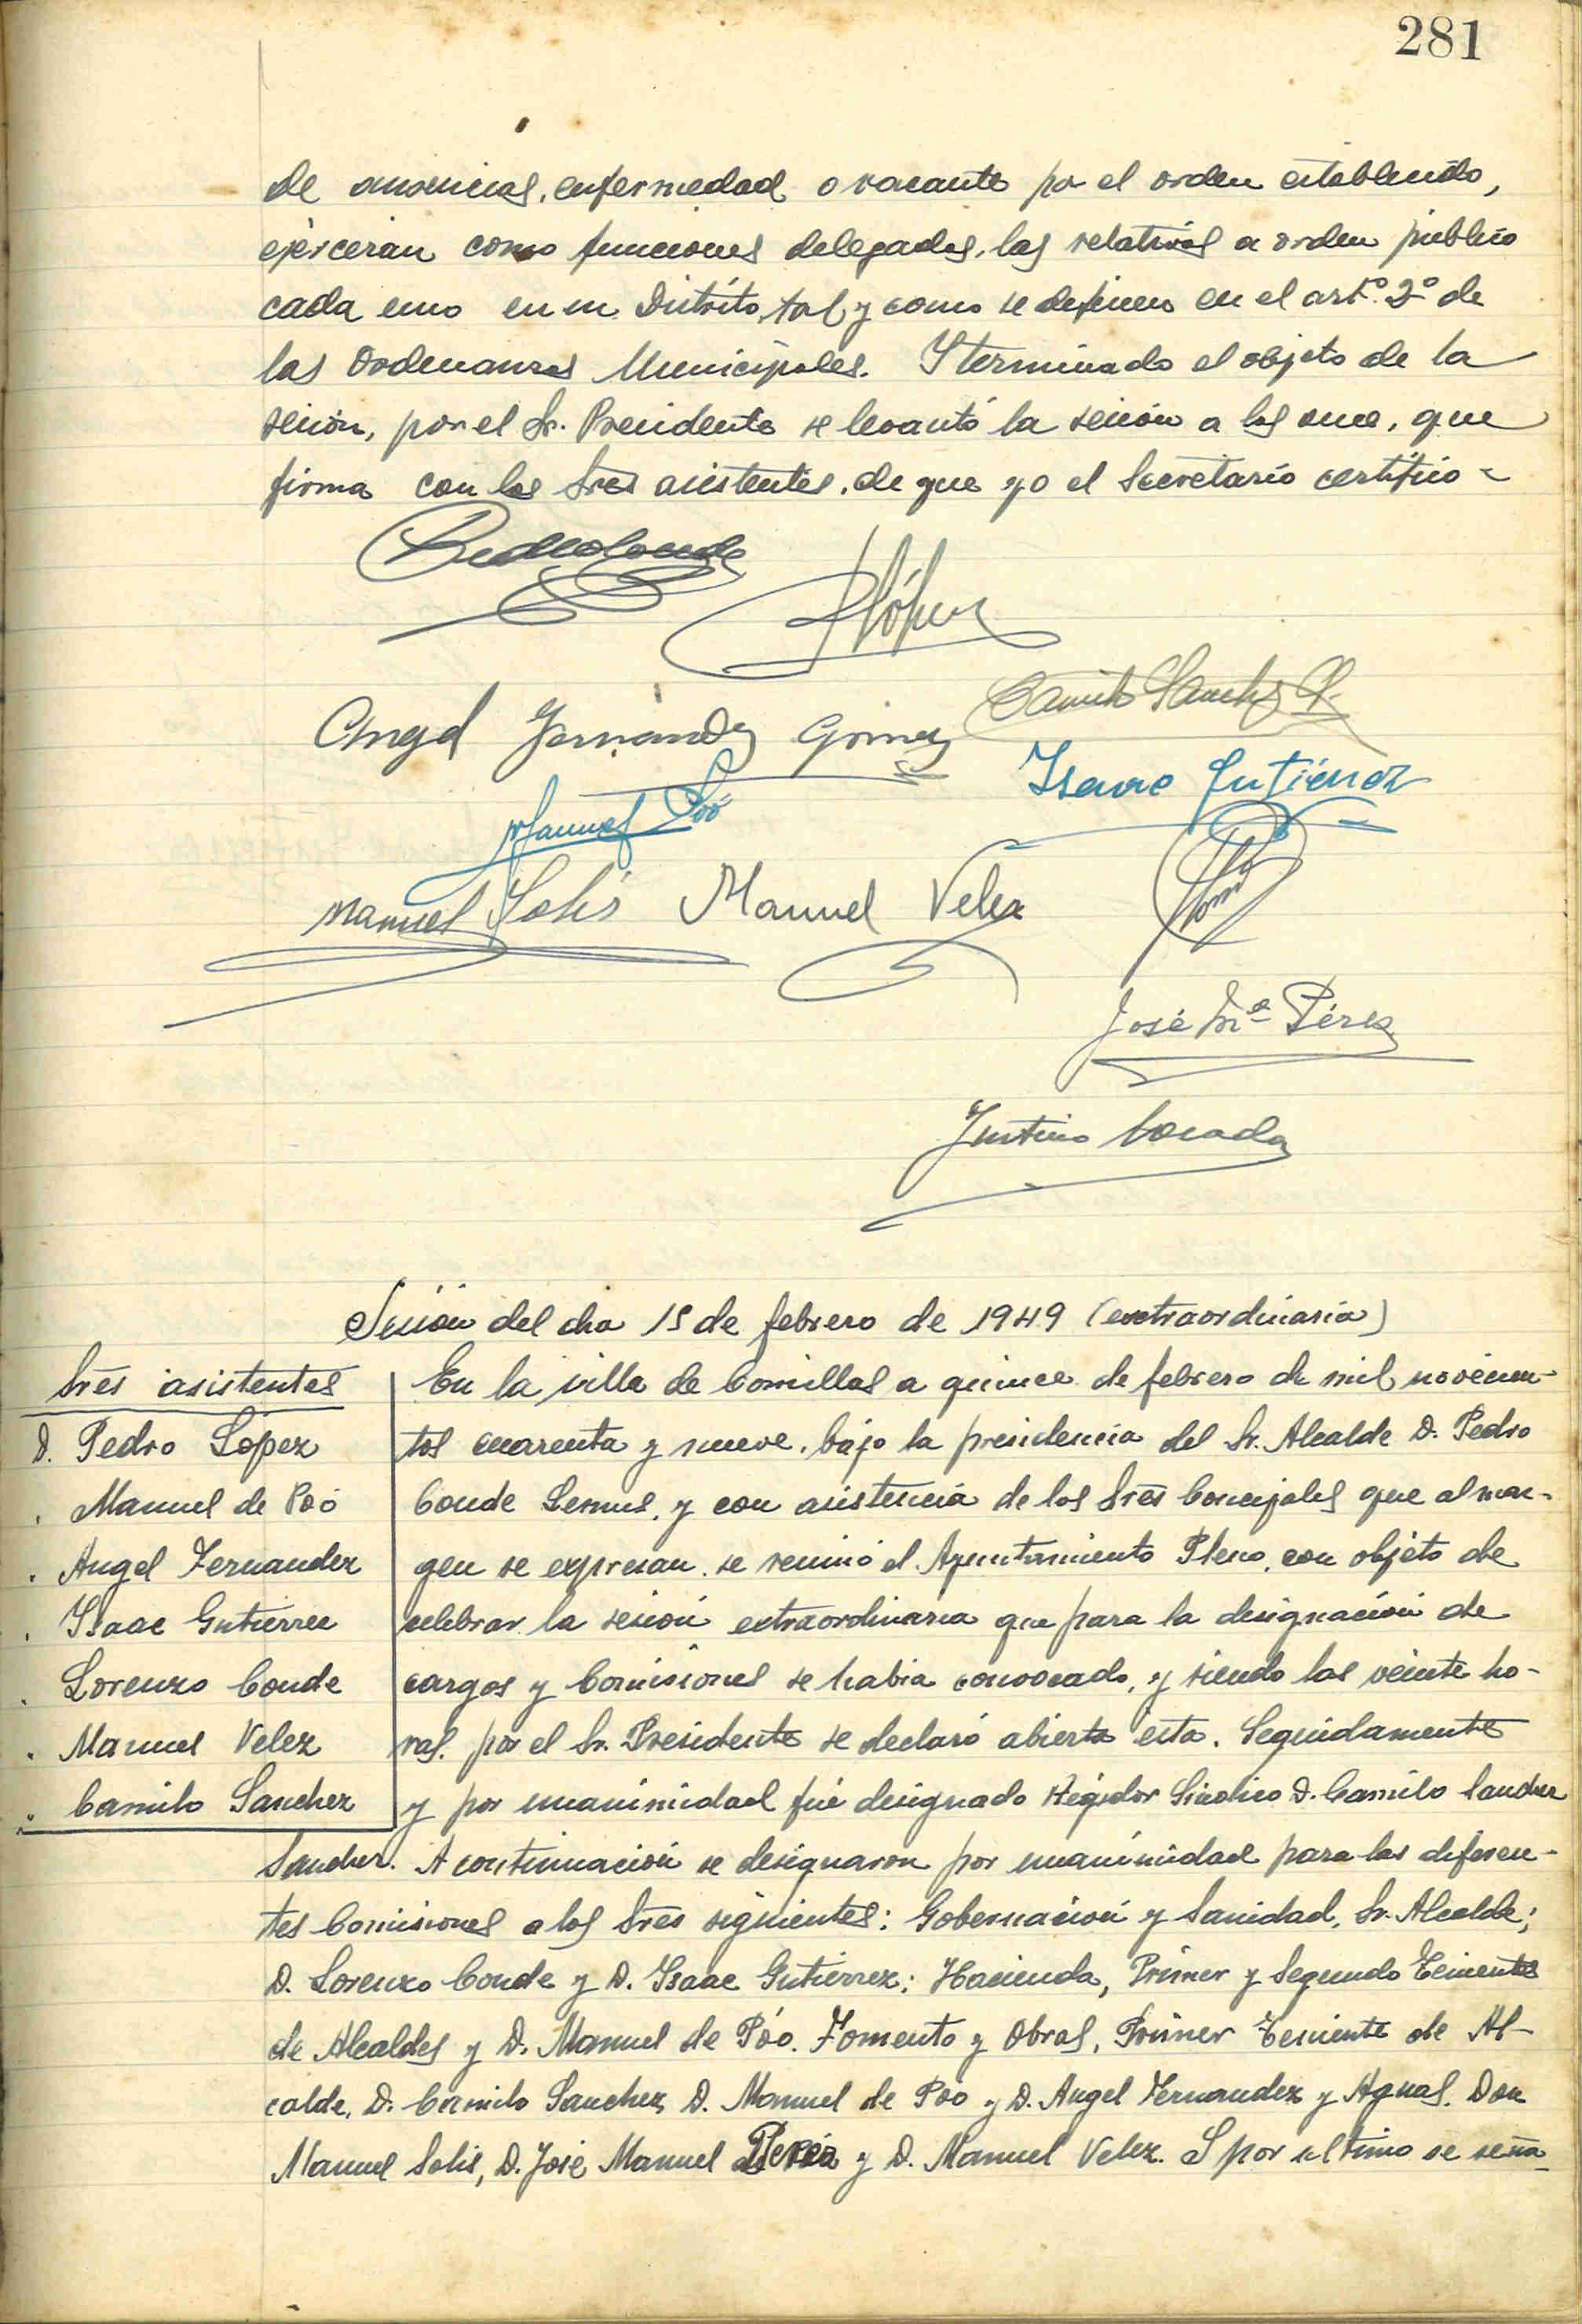 281
de ausencias, enfermedad o vacante por el orden establecido,
ejercerán como funciones delegadas, las relativas a orden público
cada uno en su Distrito, tal y como se definen en el artº. 2º de
las Ordenanzas Municipales. Y terminado el objeto de la
sesión, por el Sr. Presidente se levantó la sesión a las once, que
firma con los Sres asistentes, de que yo el Secretario certifico =
Pedro Conde
P López
Camilo Sanchez
Angel Fernandez Gómez
Isaac Gutierrez
Manuel Poó
Manuel Solís Manuel Velez
José Mª Pérez
Justino Cocada
Sesión del dia 15 de febrero de 1949 (extraordinaria)
Sres asistentes
D. Pedro López
" Manuel de Poó
" Angel Fernandez
" Isaac Gutierrez
" Lorenzo Conde
" Manuel Velez
" Camilo Sanchez
En la villa de Comillas a quince de febrero de mil novecien-
tos cuarenta y nueve, bajo la presidencia del Sr. Alcalde D. Pedro
Conde Lemus, y con asistencia de los Sres Concejales que al mar-
gen se expresan, se reunió el Ayuntamiento Pleno, con objeto de
celebrar la sesión extraordinaria que para la designación de
cargos y Comisiones se habia convocado, y siendo las veinte ho-
ras, por el Sr. Presidente se declaró abierta esta. Seguidamente
y por unanimidad fué designado Regidor Sindico D. Camilo Sanchez
Sanchez. A continuación se designaron por unanimidad para las diferen-
tes Comisiones a los Sres siguientes: Gobernación y Sanidad, Sr. Alcalde;
D. Lorenzo Conde y D. Isaac Gutierrez; Hacienda, Primer y Segundo Tenientes
de Alcaldes y D. Manuel de Póo. Fomento y Obras, Primer Teniente de Al-
calde, D. Camilo Sanchez, D. Manuel de Póo y D. Angel Fernandez y Aguas, Don
Manuel Solis, D. José Manuel Perez y D. Manuel Velez. Y por ultimo se seña-